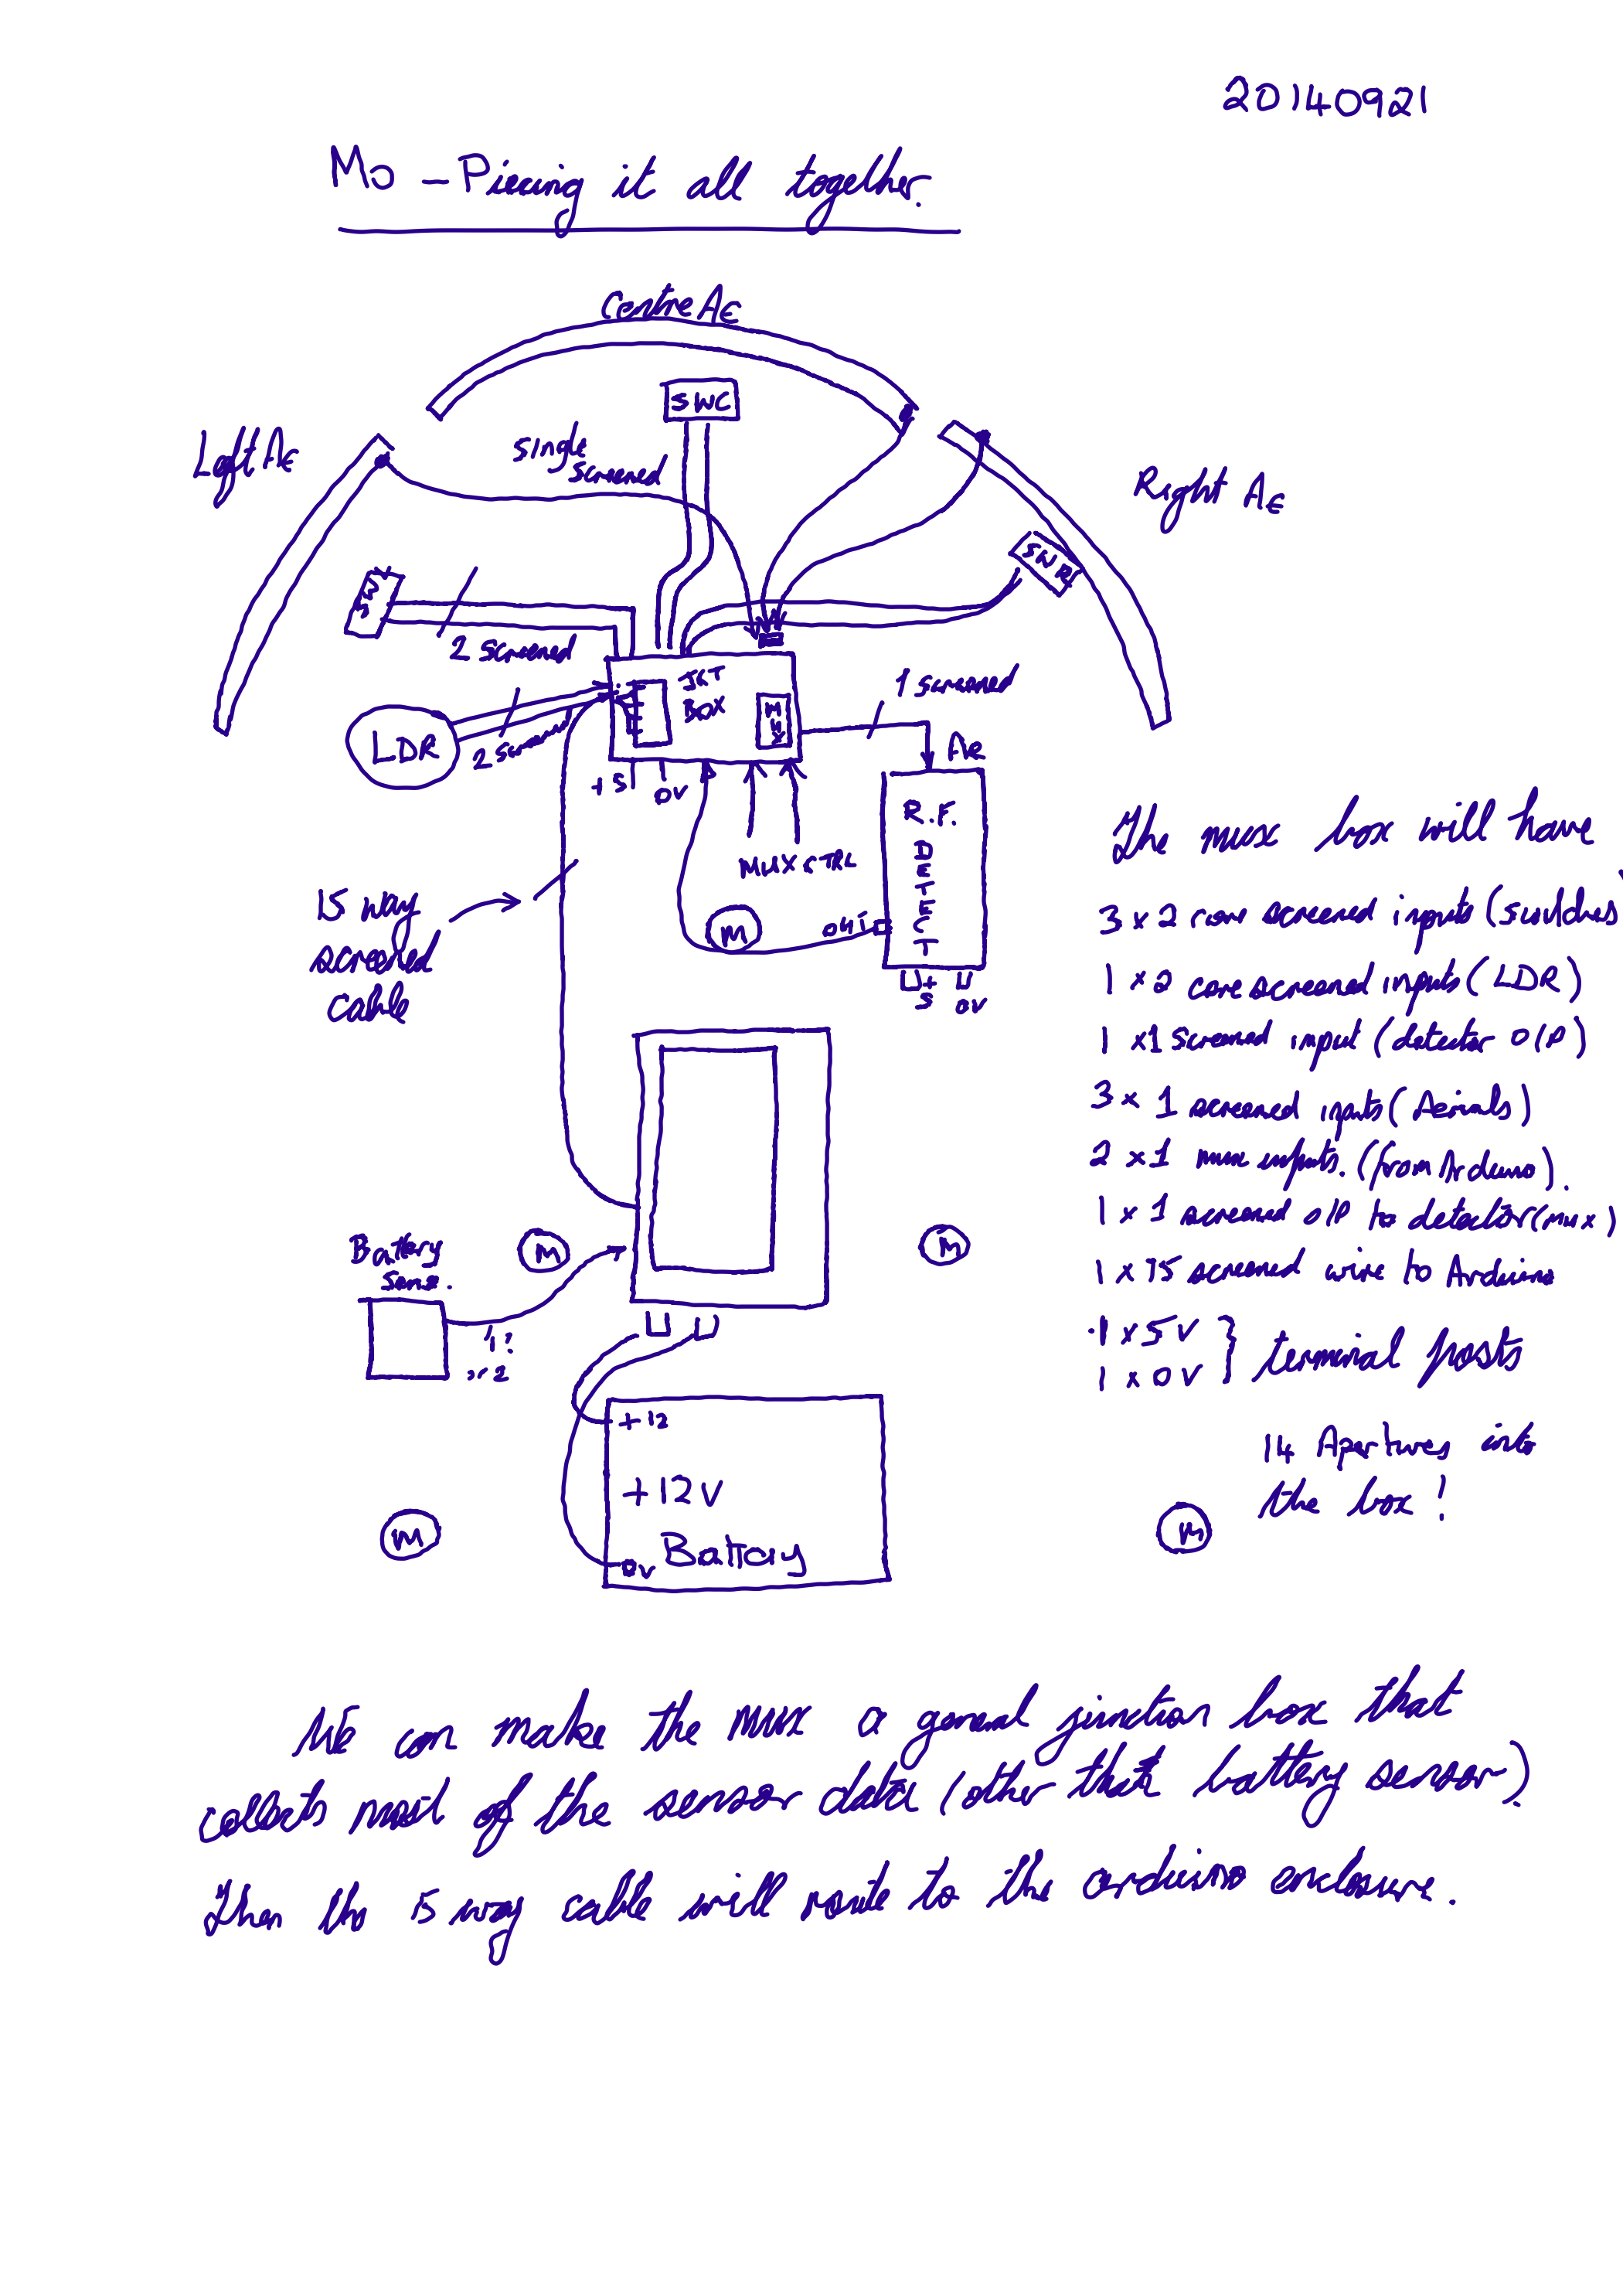 20140921
Mo - Piecing it all together.
Centre AE
SWC
Left AE
Single
Screened
Right AE
SWR
SW
2 Screened
JCT
BOX
MUX
1 screened
LDR
2 Screened
+5
0V
AE
R.F.
DETECT
MUX CTRL
M
out
+
5
0V
15 way
screened
cable
The mux box will have
3 x 2 core screened inputs (switches)
1 x 2 core screened inputs (LDR)
1 x1 screened input (detector O/P)
3 x 1 screened inputs (Aerials)
2 x1 mux inputs. (from Arduino).
1 x 1 screened O/P to detector (mux)
1 x 15 screened wire to Arduino
1 x 5V
1 x 0V } terminal posts
14 Apertures into
the box!
Battery
Sense.
M
M
1?
or 2
+12
+12V
Battery
0V
M
M
We can make the mux a general junction box that
collects most of the sensor data (other that battery sensor).
Then the 15 way cable will route to the arduino enclosure.